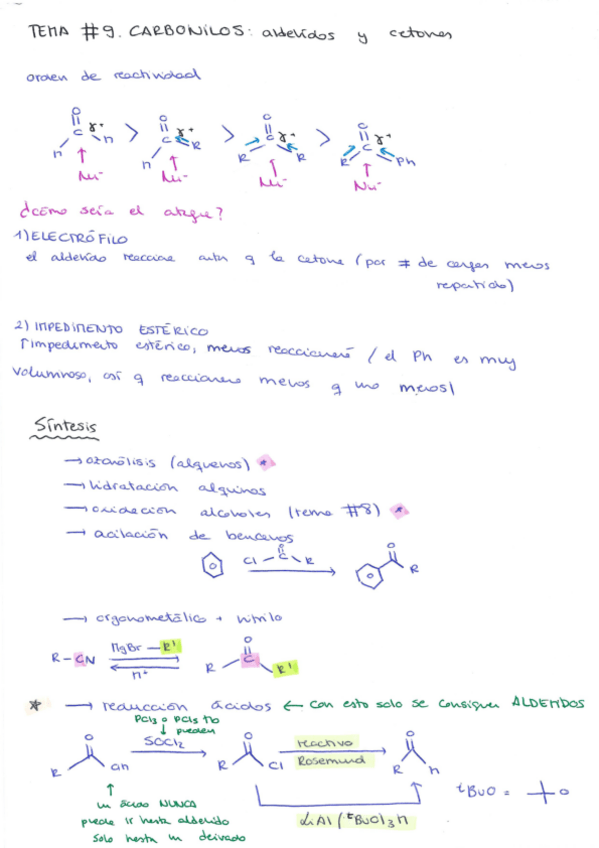 TEMA #9. CARBONILOS: aldehídos y cetonas
orden de reactividad
O O O O
C γ+ > C γ+ > C γ+ > C γ+
H H H R R R R Ph
Nu- Nu- Nu- Nu-
¿cómo sería el ataque?
1) ELECTRÓFILO
el aldehído reacciona antes q la cetona (por ≠ de cargas menos
repartido)
2) IMPEDIMENTO ESTÉRICO
↑impedimento estérico, menos reaccionará / el Ph es muy
voluminoso, así q reaccionara menos q uno menos/
Síntesis
→ ozonólisis (alquenos) *
→ hidratación alquinos
→ oxidación alcoholes (tema #8) *
→ acilación de bencenos
Cl C R
O
O
R
→ organometálico + nitrilo
R-CN MgBr-R' H+ R C R'
O
* → reducción ácidos ← con esto solo se consiguen ALDEHIDOS
PCl3 o PCl5 tb
pueden
O SOCl2 O reactivo O
R OH R Cl Rosemund R H
tBuO = O
LiAl(tBuO)3H
un ácido NUNCA
puede ir hasta aldehído
solo hasta un derivado